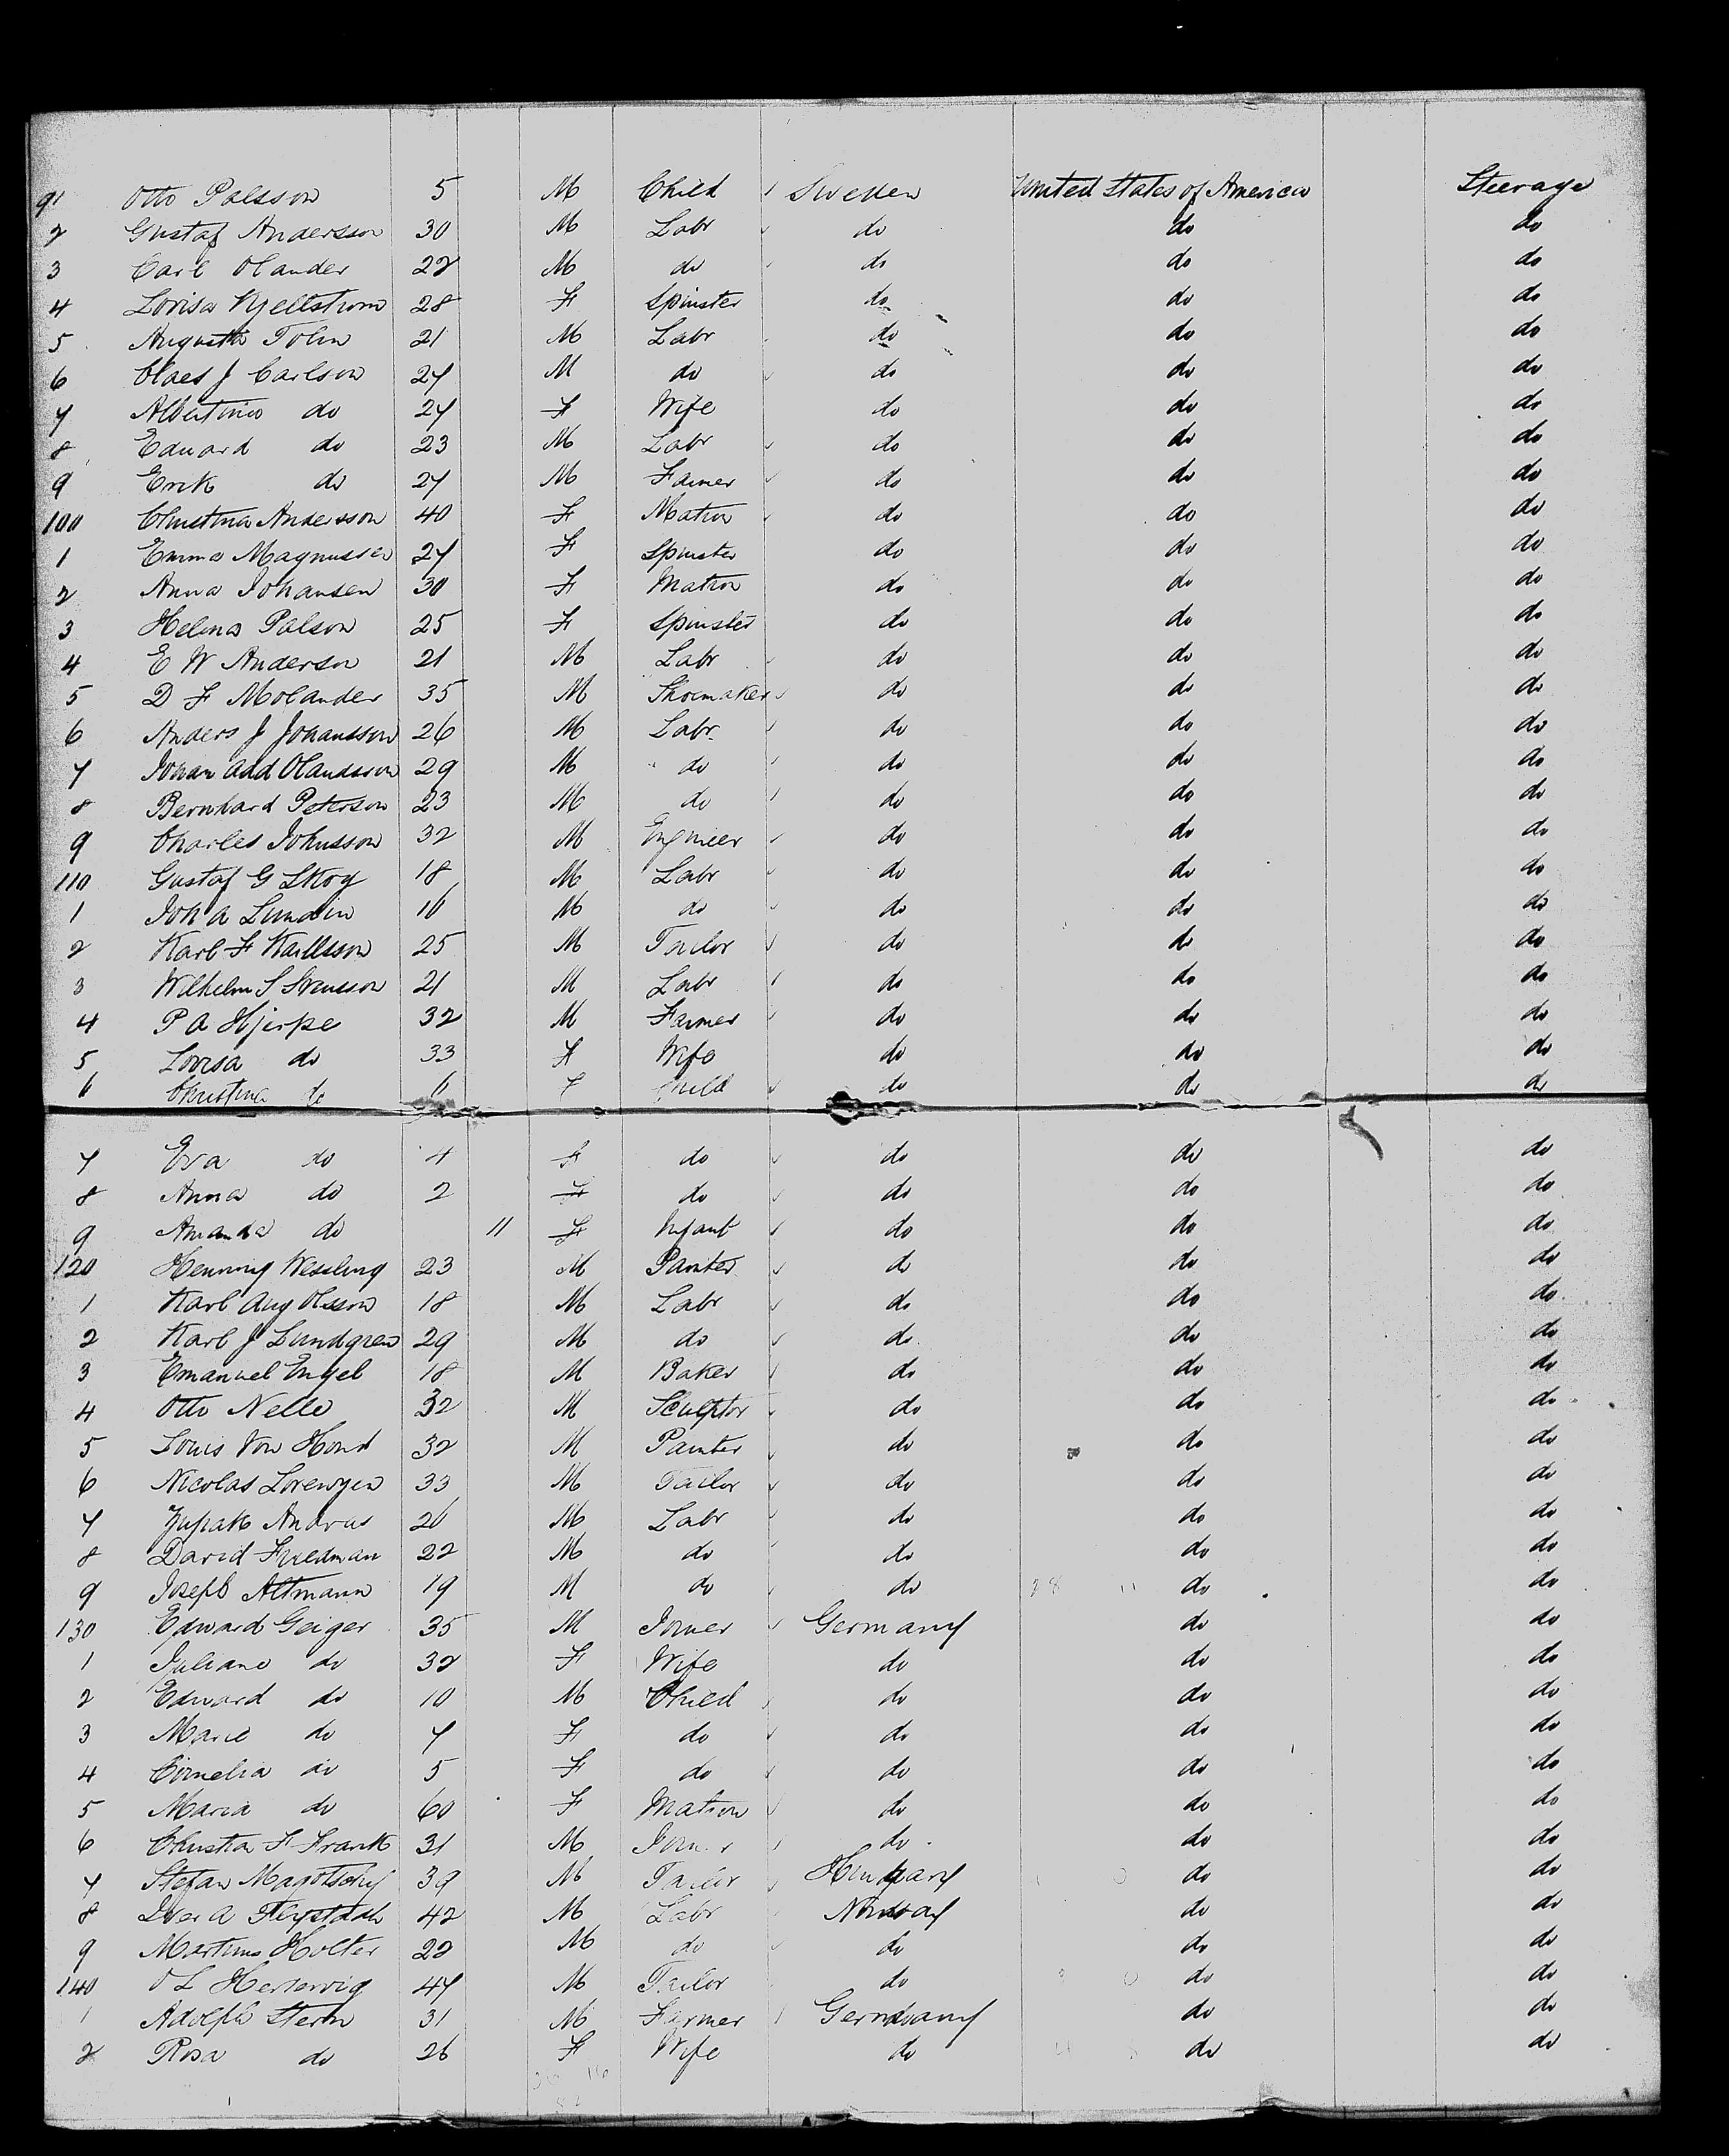 91 Otto Palsson 5 M Child Sweden United States of America Steerage
2 Gustaf Andersson 30 M Labr do do do
3 Carl Olander 22 M do do do do
4 Lovisa Kjellstrom 28 F Spinster do do do
5 Augusta Tolin 21 M Labr do do do
6 Claes J Carlson 27 M do do do do
7 Albertina do 27 F Wife do do do
8 Eduard do 23 M Labr do do do
9 Erik do 27 M Farmer do do do
100 Christina Andersson 40 F Matron do do do
1 Emma Magnusson 27 F Spinster do do do
2 Anna Johansen 30 F Matron do do do
3 Helena Palson 25 F Spinster do do do
4 E W Anderson 21 M Labr do do do
5 D F Molander 35 M Shoemaker do do do
6 Anders J Johansson 26 M Labr do do do
7 Johan Olandsson 29 M do do do do
8 Bernhard Peterson 23 M do do do do
9 Charles Johnsson 32 M Engineer do do do
110 Gustaf G Skog 18 M Labr do do do
1 Joh A Lundin 16 M do do do do
2 Karl F Karllsson 25 M Tailor do do do
3 Wilhelm S Svensson 21 M Labr do do do
4 P A Hjerpe 32 M Farmer do do do
5 Lovisa do 33 F Wife do do do
6 Christina do 6 F Child do do do
7 Eva do 4 F do do do do
8 Anna do 2 F do do do do
9 Amanda do 11 F Infant do do do
120 Henning Wessling 23 M Painter do do do
1 Karl Aug Olsson 18 M Labr do do do
2 Karl J Lundgren 29 M do do do do
3 Emanuel Engel 18 M Baker do do do
4 Otto Nelle 32 M Sculptor do do do
5 Louis Von Hond 32 M Painter do do do
6 Nicolas Lorenzen 33 M Tailor do do do
7 Andras 26 M Labr do do do
8 David Friedman 22 M do do do do
9 Joseph Altmann 19 M do do do do
130 Edward Geiger 35 M Joiner Germany do do
1 Juliane do 32 F Wife do do do
2 Edward do 10 M Child do do do
3 Marie do 7 F do do do do
4 Cornelia do 5 F do do do do
5 Maria do 60 F Matron do do do
6 Christian F Frank 31 M Joiner do do do
7 Stefan 39 M Tailor Hungary do do
8 Iver A 42 M Labr Norway do do
9 Martinus Holter 22 M do do do do
140 O L Hertervig 47 M Tailor do do do
1 Adolph Stern 31 M Farmer Germany do do
2 Rosa do 26 F Wife do do do